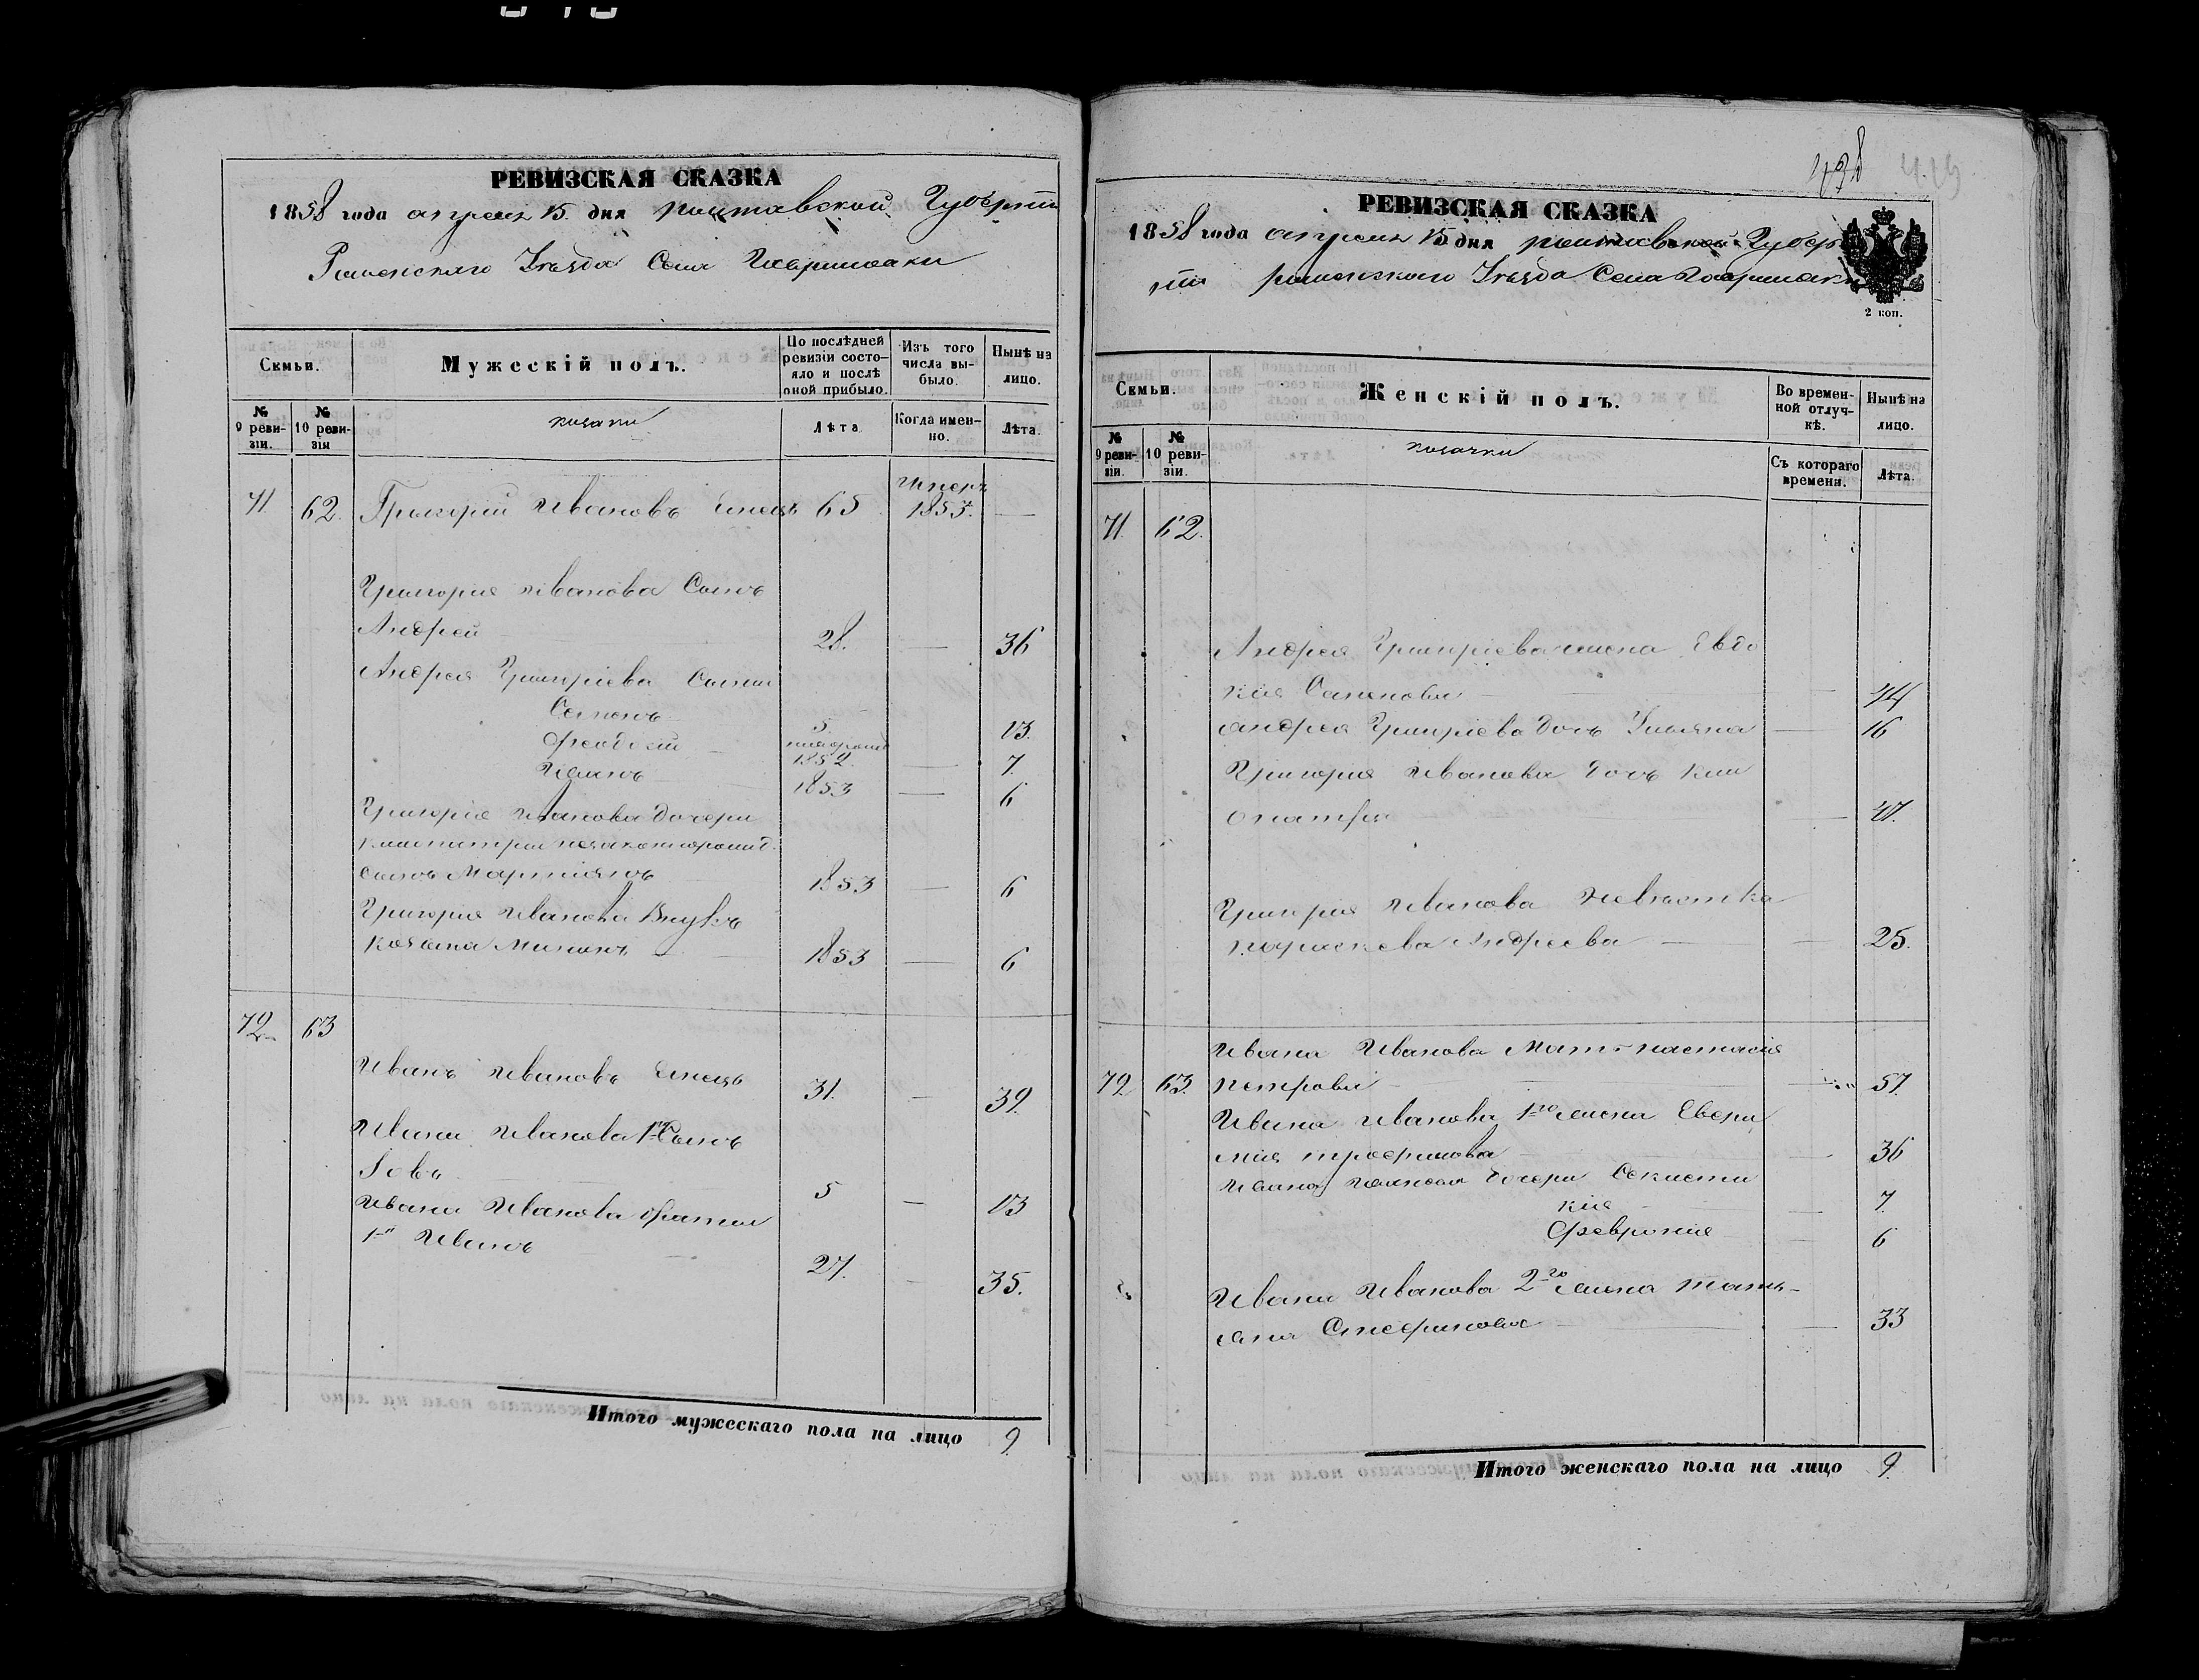 РЕВИЗСКАЯ СКАЗКА
1858 года апреля 15 дня Полтавской Губерніи
Роменскаго Уезда Села Гавришовки
Семьи.
Мужескій полъ.
По послѣдней ревизіи состояло и послѣ оной прибыло.
Изъ того числа выбыло.
Нынѣ на лицо.
№ 9 ревизіи.
№ 10 ревизіи
козаки
Лѣта
Когда именно.
Лѣта.
71 62. Григорій Ивановъ 65 Умеръ 1853. —
Григорія Иванова Сынъ
Андрей 28. — 36
Андрея Григріева Сыны
Семенъ 5. 13.
Феодосій 1852 — 7.
1853 — 6
Григорія Иванова дочери
сынъ Мартиянъ 1853 — 6
Григорія Иванова Внукъ
1853 — 6
72 63
Иванъ Ивановъ 31. — 39.
Ивана Иванова 1го Сынъ
Іовъ 5 — 13
Ивана Иванова братья
1й Иванъ 27. — 35.
Итого мужескаго пола на лицо 9.
438
РЕВИЗСКАЯ СКАЗКА
1858 года апреля 15 дня Полтавской Губер
ніи Роменскаго Уезда Села Гавришовки
2 коп.
Семьи.
Женскій полъ.
Во временной отлучкѣ.
Нынѣ на лицо.
№ 9 ревизіи.
№ 10 ревизіи.
козачки
Съ котораго времени.
Лѣта.
71. 62.
Андрея Григріева жена Евдо
кія Семенова — 44
Андрея Григріева дочь Ульяна — 16
Григорія Иванова дочь Кли
опатра — 47.
Григорія Иванова Невѣстка
Параскева Андреева — 25.
Ивана Иванова Мать Настасія
72 63. Петрова — 57.
Ивана Иванова 1го жена Евфи
мія Трофимова — 36
дочери
кія — 7.
Февронія — 6
Ивана Иванова 2го жена Тать-
яна — 33
Итого женскаго пола на лицо 9.